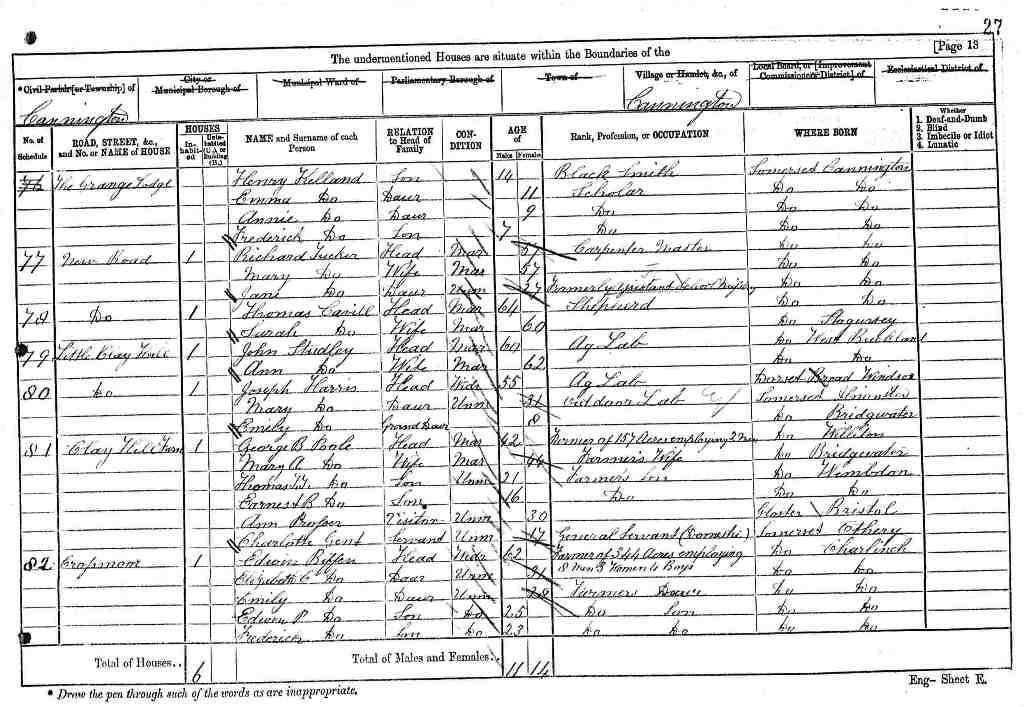 27
The undermentioned Houses are situate within the Boundaries of the
[Page 13
* Civil Parish [or Township] of
City or Municipal Borough of
Municipal Ward of
Parliamentary Borough of
Town of
Village or Hamlet, &c., of
Local Board, or [Improvement Commissioners District] of
Ecclesiastical District of
Cannington
Cannington
No. of Schedule
ROAD, STREET, &c., and No. or NAME of HOUSE
HOUSES
In-habit-ed
Unin-habited (U.), or Building (B.)
NAME and Surname of each Person
RELATION to Head of Family
CON-DITION
AGE of
Males
Females
Rank, Profession, or OCCUPATION
WHERE BORN
Whether
1. Deaf-and-Dumb
2. Blind
3. Imbecile or Idiot
4. Lunatic
76 The Grange Lodge Henry Kelland Son 14 Black Smith Somerset Cannington
Emma Do Daur 11 Scholar Do Do
Annie Do Daur 9 Do Do Do
Frederick Do Son 7 Do Do Do
77 New Road 1 Richard Tucker Head Mar 57 Carpenter Master Do Do
Mary Do Wife Mar 57 Do Do
Jane Do Daur Unm 27 Formerly Do Do
78 Do 1 Thomas Cavill Head Mar 64 Shepherd Do Do
Sarah Do Wife Mar 60 Do Stogursey
79 Little Clay Hill 1 John Studley Head Mar 60 Ag Lab Do West Buckland
Ann Do Wife Mar 62 Do Do
80 Do 1 Joseph Harris Head Widr 55 Ag Lab Dorset Broad Windsor
Mary Do Daur Unm 31 Out door Lab Somerset Ilminster
Emily Do Grand Daur 8 Do Bridgwater
81 Clay Hill Farm 1 George B. Poole Head Mar 42 Farmer of 157 Acres employing 2 Men Do Williton
Mary A. Do Wife Mar 44 Farmer's Wife Do Bridgewater
Thomas Do Son Unm 21 Farmer's Son Do Wembdon
Earnest B. Do Son 16 Do Do Do
Ann Prosser Visitor Unm 30 Gloster Bristol
Charlotte Gent Servand Unm 17 General Servant (Domestic) Somerset Othery
82 1 Edwin Biffen Head Widr 62 Farmer of 344 Acres employing Do Charlinch
8 Men 3 Women 4 Boys
Elizabeth C. Do Daur Unm 31 Do Do
Emily Do Daur Unm 28 Farmers Daur Do Do
Edwin P. Do Son Do 25 Do Son Do Do
Frederick Do Son Do 23 Do Do Do Do
Total of Houses.. 6
Total of Males and Females.. 11 14
* Draw the pen through such of the words as are inappropriate.
Eng- Sheet E.